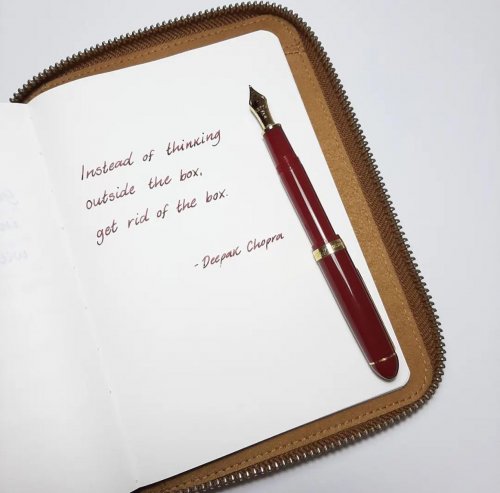 Instead of thinking
outside the box,
get rid of the box.
- Deepak Chopra